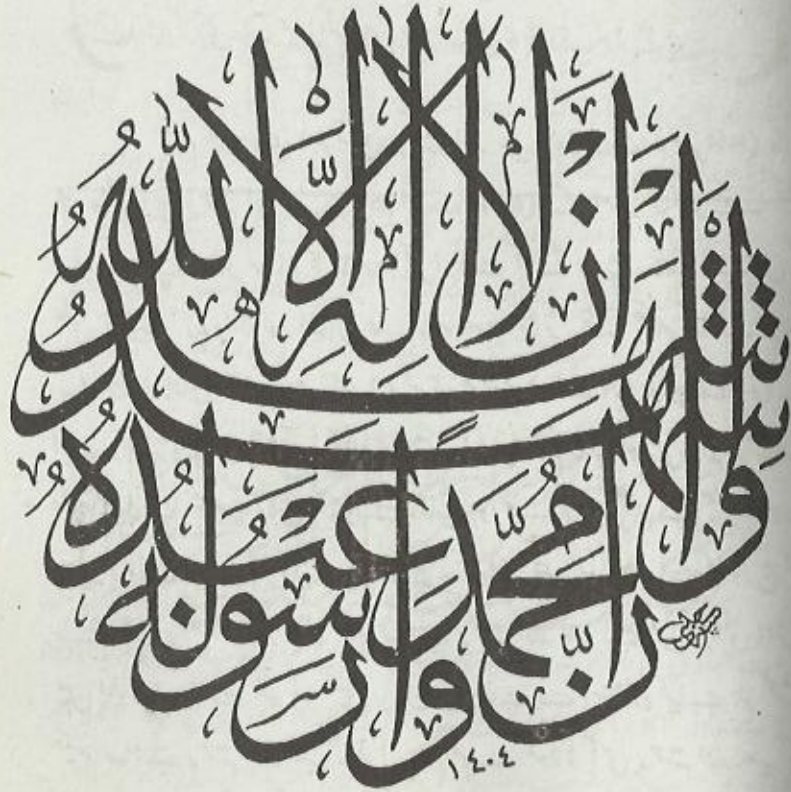 أَشْهَدُ أَنْ لَا إِلٰهَ إِلَّا اللهُ
وَأَشْهَدُ أَنَّ مُحَمَّدًا عَبْدُهُ وَرَسُولُهُ
١٤٠٤